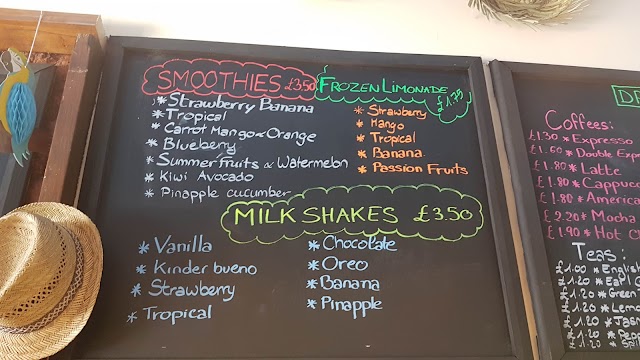 SMOOTHIES £3.50
* Strawberry Banana
* Tropical
* Carrot Mango & Orange
* Blueberry
* Summer Fruits & Watermelon
* Kiwi Avocado
* Pinapple cucumber
FROZEN LIMONADE
£1.75
* Strawberry
* Mango
* Tropical
* Banana
* Passion Fruits
MILK SHAKES £3.50
* Vanilla
* Kinder bueno
* Strawberry
* Tropical
* Chocolate
* Oreo
* Banana
* Pinapple
DE
Coffees:
£1.30 * Expresso
£1.60 * Double Exp
£1.80 * Latte
£1.80 * Cappuc
£1.80 * America
£2.20 * Mocha
£1.90 * Hot C
Teas:
£1.00 * English
£1.20 * Earl G
£1.20 * Green T
£1.20 * Lemo
£1.20 * Jasm
£1.20 * Peppe
£1.20